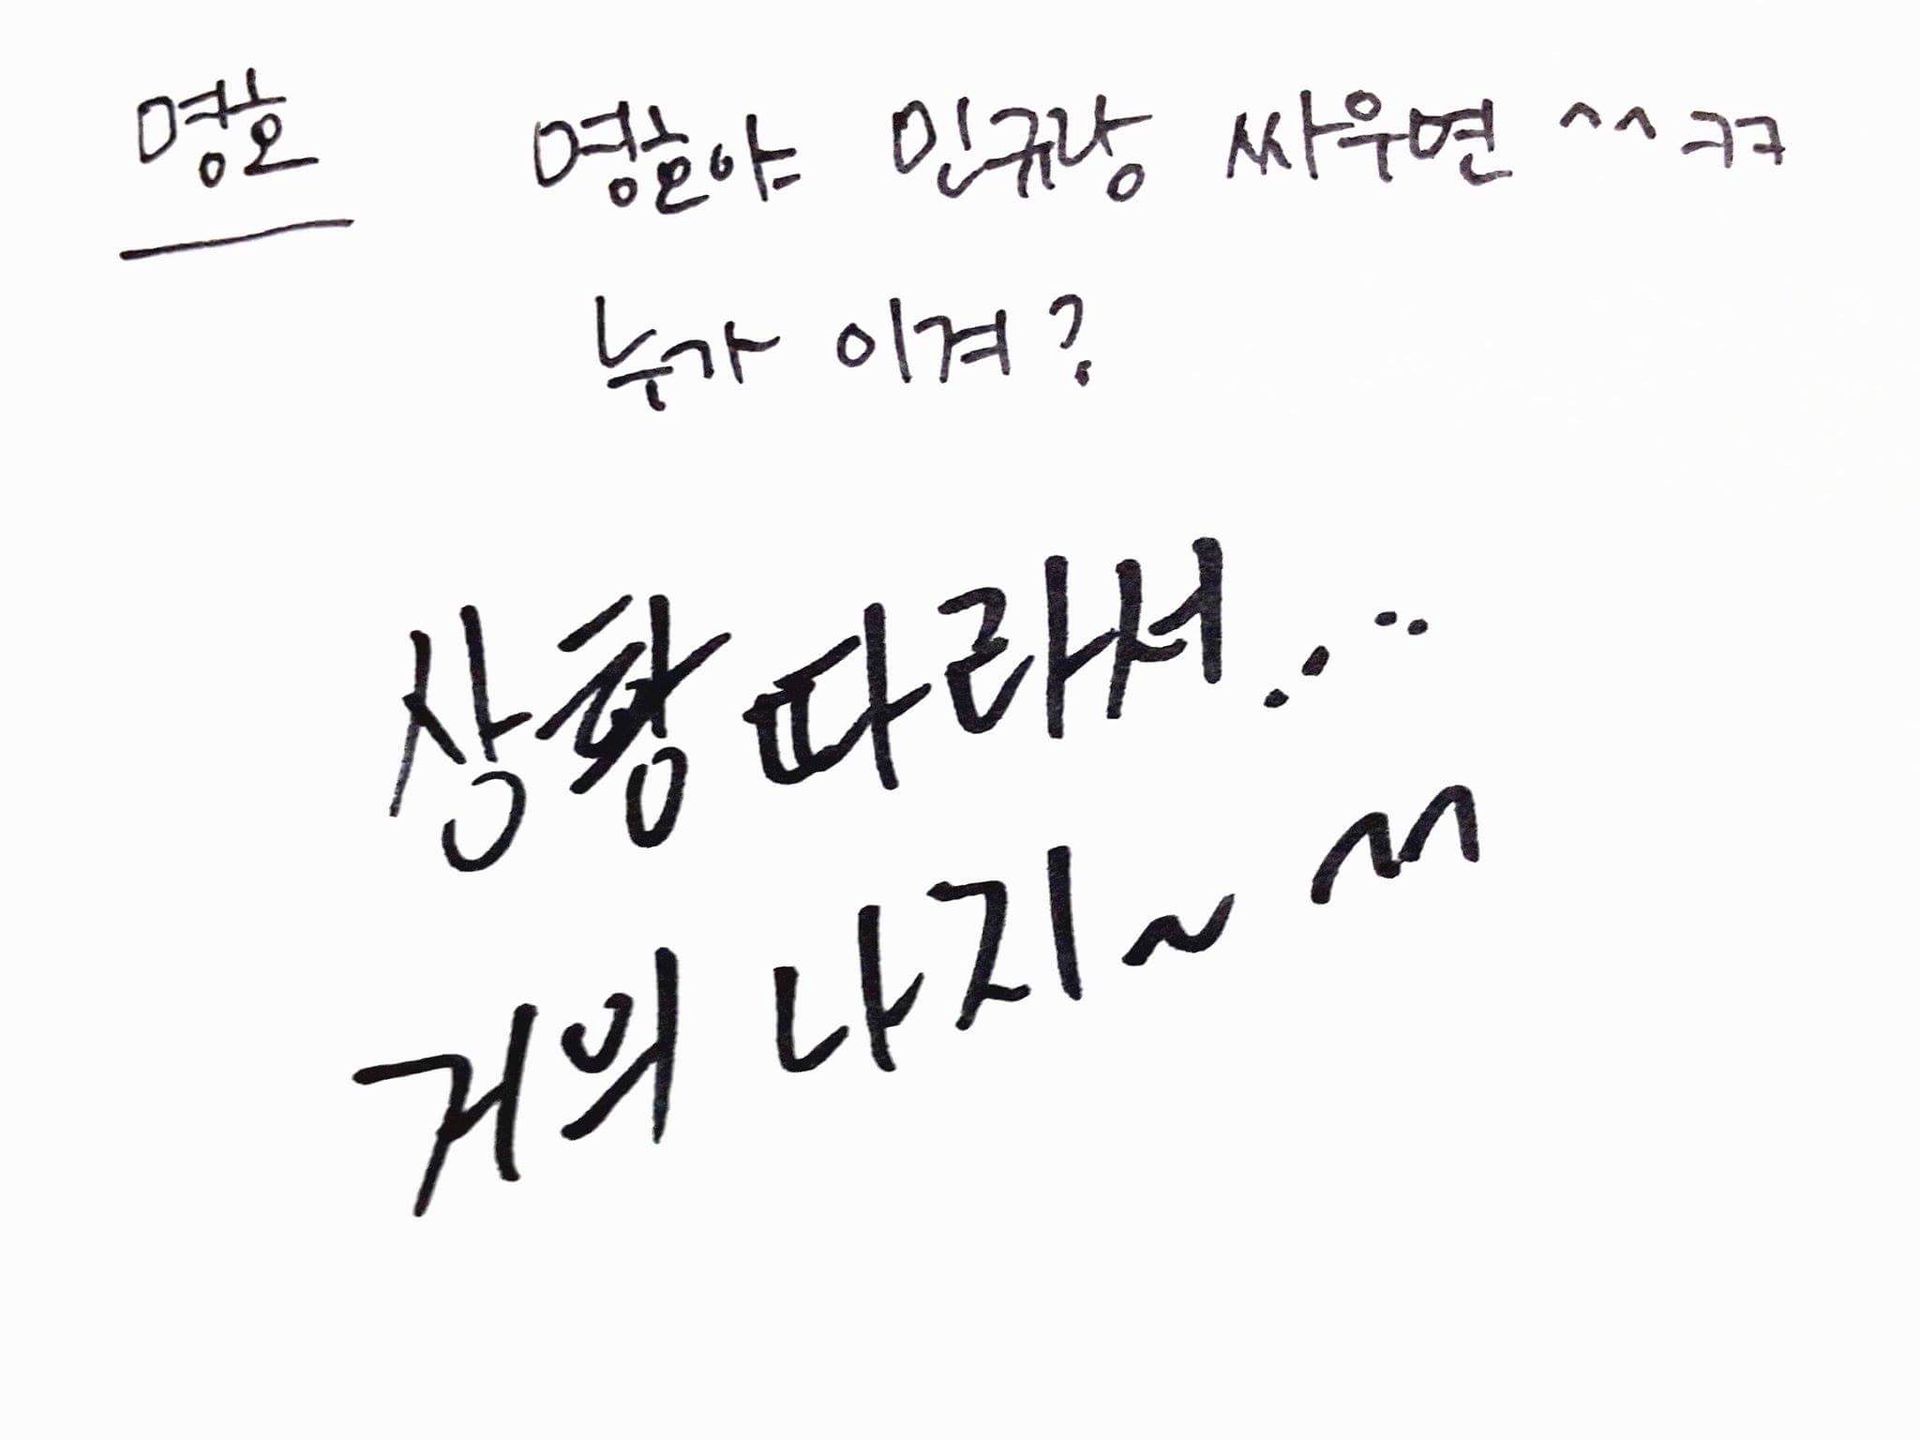 명호
명호야 민규랑 싸우면 ^^ ㅋㅋ
누가 이겨?
상황 따라서....
거의 나지~ ^^